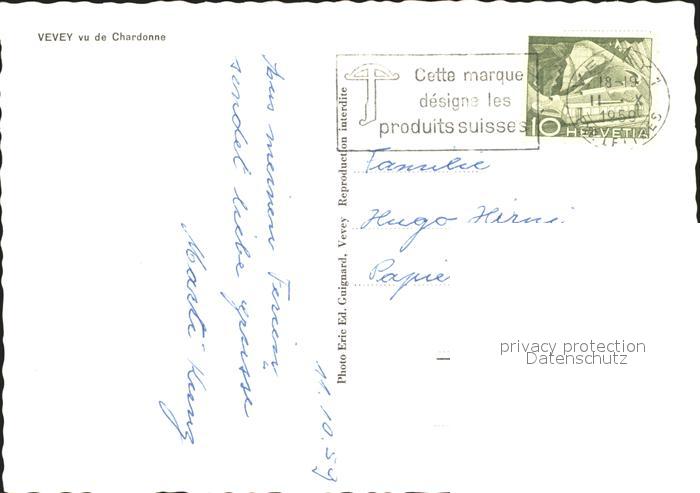 VEVEY vu de Chardonne
Cette marque
désigne les
produits suisses
18-19
11. X
1959
10 HELVETIA
Familie
Hugo Hirni
Papie
privacy protection
Datenschutz
Photo Eric Ed. Guignard, Vevey Reproduction interdite
11.10.59
Aus meinen Ferien
sendet liebe Grüsse